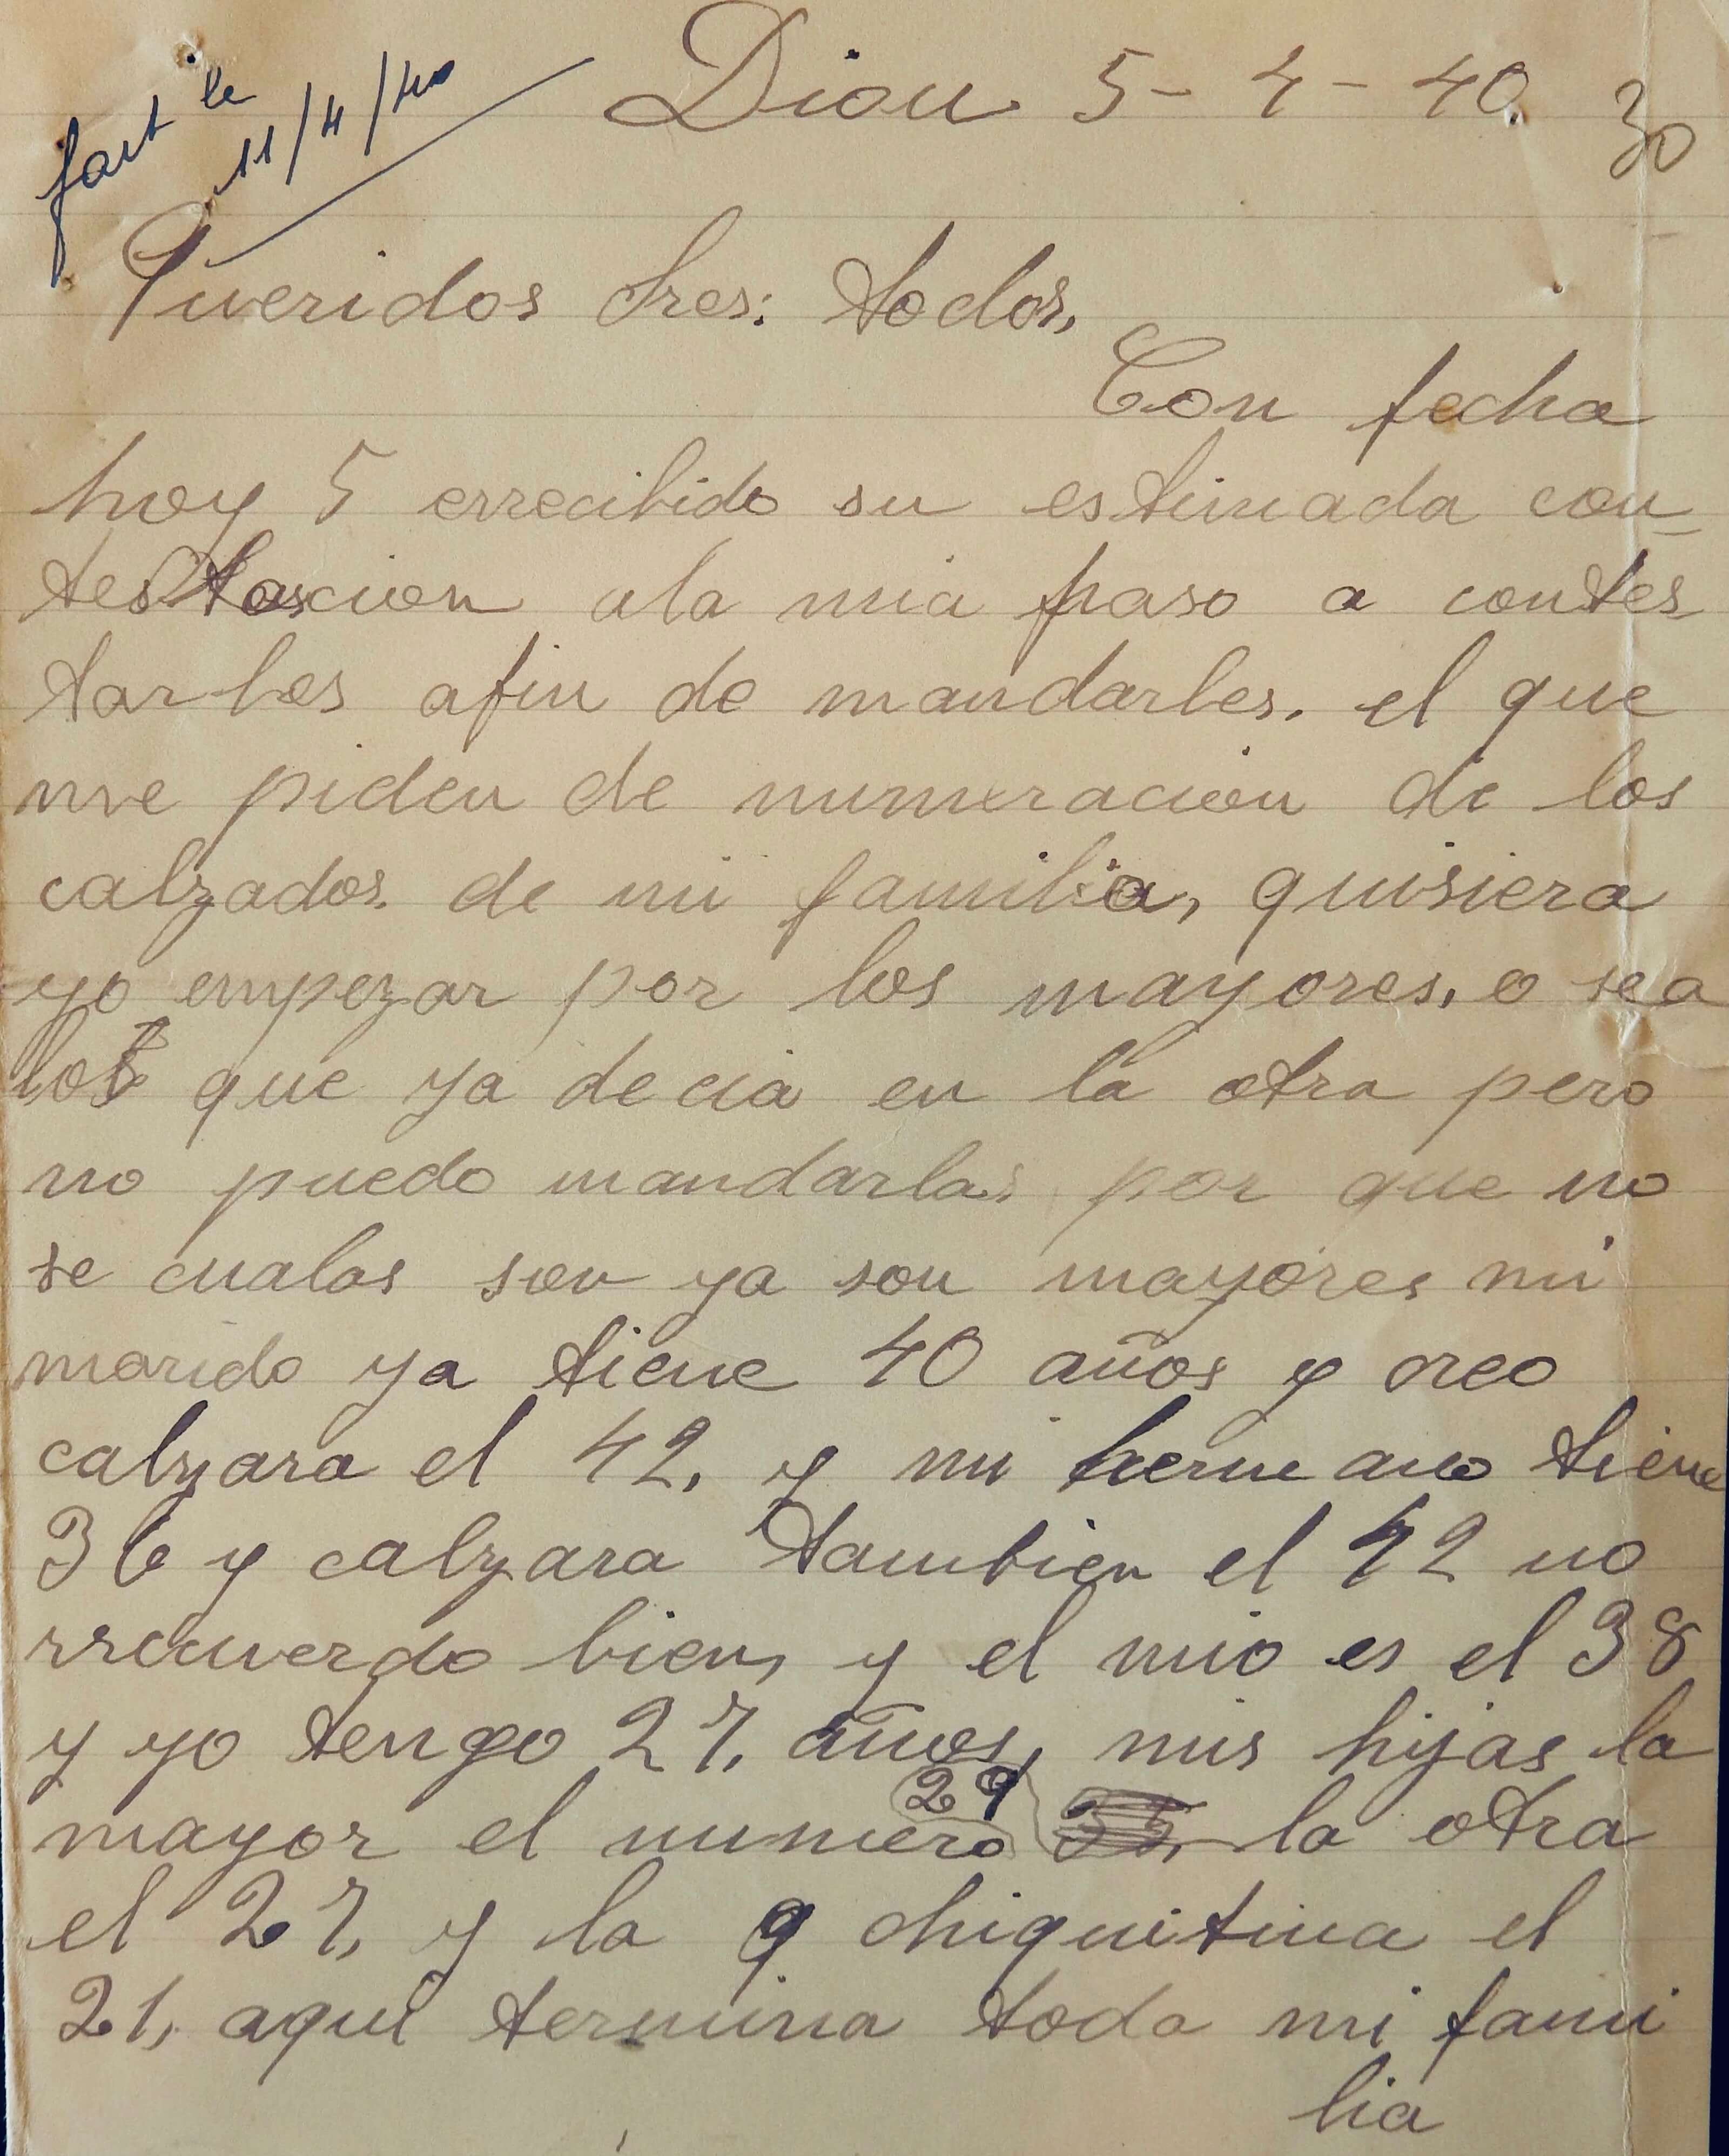 fait le
11/4/40
Diou 5-4-40.
30
Queridos Sres: todos,
Con fecha
hoy 5 errecibido su estimada con-
testascion ala mia paso a contes
tarles afin de mandarles. el que
me piden de numeracion de los
calzados. de mi familia, quisiera
yo empezar por los mayores, o sea
los que ya decia en la otra pero
no puedo mandarlas por que no
se cualas son ya son mayores mi
marido ya tiene 40 años y creo
calzara el 42, y mi hermano tiene
36 y calzara tambien el 42 no
rrecuerdo bien, y el mio es el 38
y yo tengo 27, años, mis hijas la
mayor el numero 29 la otra
el 27, y la chiquitina el
21, aqui termina toda mi fami
lia